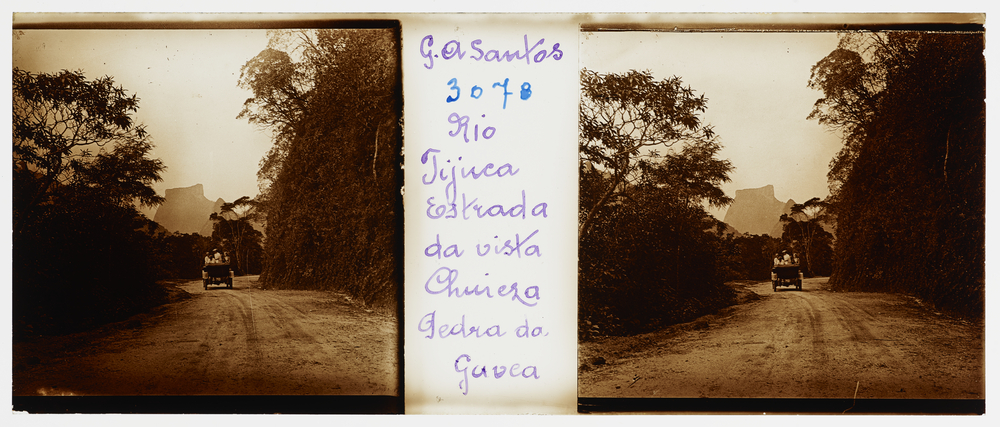 G. A Santos
3078
Rio
Tijuca
Estrada
da vista
Chineza
Pedra da
Gavea